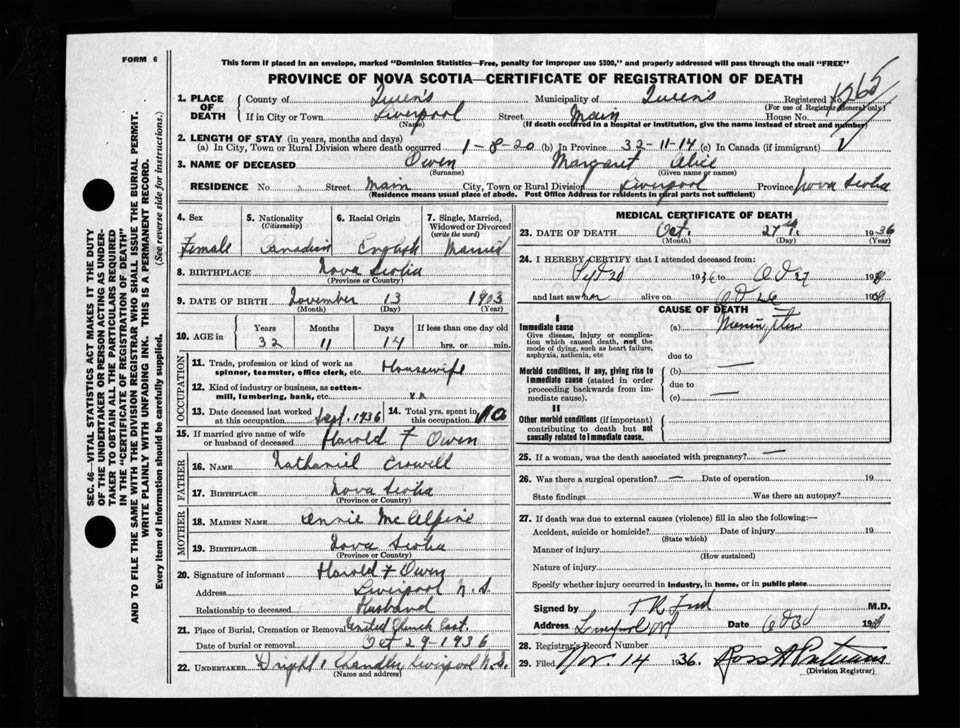 FORM 6
This form if placed in an envelope, marked "Dominion Statistics—Free, penalty for improper use $300," and properly addressed will pass through the mail "FREE"
PROVINCE OF NOVA SCOTIA—CERTIFICATE OF REGISTRATION OF DEATH
1. PLACE OF DEATH County of Queen's Municipality of Queen's Registered No. 1965
(For use of Registrar General only)
If in City or Town Liverpool Street Main House No.
(Name) (If death occurred in a hospital or institution, give the name instead of street and number)
2. LENGTH OF STAY (in years, months and days)
(a) In City, Town or Rural Division where death occurred 1-8-20 (b) In Province 32-11-14 (c) In Canada (if immigrant)
3. NAME OF DECEASED Owen Margaret Alice
(Surname) (Given name or names)
RESIDENCE No. Street Main City, Town or Rural Division Liverpool Province Nova Scotia
(Residence means usual place of abode. Post Office Address for residents in rural parts not sufficient)
SEC. 46—VITAL STATISTICS ACT MAKES IT THE DUTY
OF THE UNDERTAKER OR PERSON ACTING AS UNDER-
TAKER TO OBTAIN ALL THE PARTICULARS REQUIRED
IN THE "CERTIFICATE OF REGISTRATION OF DEATH"
AND TO FILE THE SAME WITH THE DIVISION REGISTRAR WHO SHALL ISSUE THE BURIAL PERMIT.
WRITE PLAINLY WITH UNFADING INK. THIS IS A PERMANENT RECORD.
Every item of information should be carefully supplied. (See reverse side for instructions.)
4. Sex 5. Nationality 6. Racial Origin 7. Single, Married,
(Citizenship) Widowed or Divorced
(write the word)
Female Canadian English Married
8. BIRTHPLACE Nova Scotia
(Province or Country)
9. DATE OF BIRTH November 13 1903
(Month) (Day) (Year)
10. AGE in Years Months Days If less than one day old
32 11 14 hrs. or min.
OCCUPATION
11. Trade, profession or kind of work as
spinner, teamster, office clerk, etc. Housewife
12. Kind of industry or business, as cotton-
mill, lumbering, bank, etc.
13. Date deceased last worked
at this occupation Sept. 1936
14. Total yrs. spent in
this occupation 10
15. If married give name of wife
or husband of deceased Harold F Owen
FATHER
16. NAME Nathaniel Crowell
17. BIRTHPLACE Nova Scotia
(Province or Country)
MOTHER
18. MAIDEN NAME Annie McAlpine
19. BIRTHPLACE Nova Scotia
(Province or Country)
20. Signature of informant Harold F Owen
Address Liverpool N.S.
Relationship to deceased Husband
21. Place of Burial, Cremation or Removal United Church Cert.
Date of burial or removal Oct 29-1936
22. UNDERTAKER Chandler Liverpool N.S.
(Name and address)
MEDICAL CERTIFICATE OF DEATH
23. DATE OF DEATH Oct. 27th 1936
(Month) (Day) (Year)
24. I HEREBY CERTIFY that I attended deceased from:
1936 to Oct 27 19
and last saw her alive on Oct 26 19
CAUSE OF DEATH
I
Immediate cause
Give disease, injury or complica-
tion which caused death, not the
mode of dying, such as heart failure,
asphyxia, asthenia, etc
(a) Meningitis
due to —
Morbid conditions, if any, giving rise to
immediate cause (stated in order
proceeding backwards from im-
mediate cause).
(b) —
due to
(c) —
II
Other morbid conditions (if important)
contributing to death but not
causally related to immediate cause.
25. If a woman, was the death associated with pregnancy? —
26. Was there a surgical operation? — Date of operation 19
State findings Was there an autopsy?
27. If death was due to external causes (violence) fill in also the following:—
Accident, suicide or homicide? Date of injury 19
(State which)
Manner of injury
(How sustained)
Nature of injury
Specify whether injury occurred in industry, in home, or in public place
Signed by M.D.
Address Liverpool Date 19
28. Registrar's Record Number
29. Filed Nov. 14 1936.
(Division Registrar)